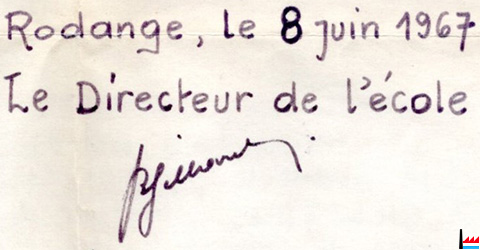 Rodange, le 8 juin 1967
Le Directeur de l'école